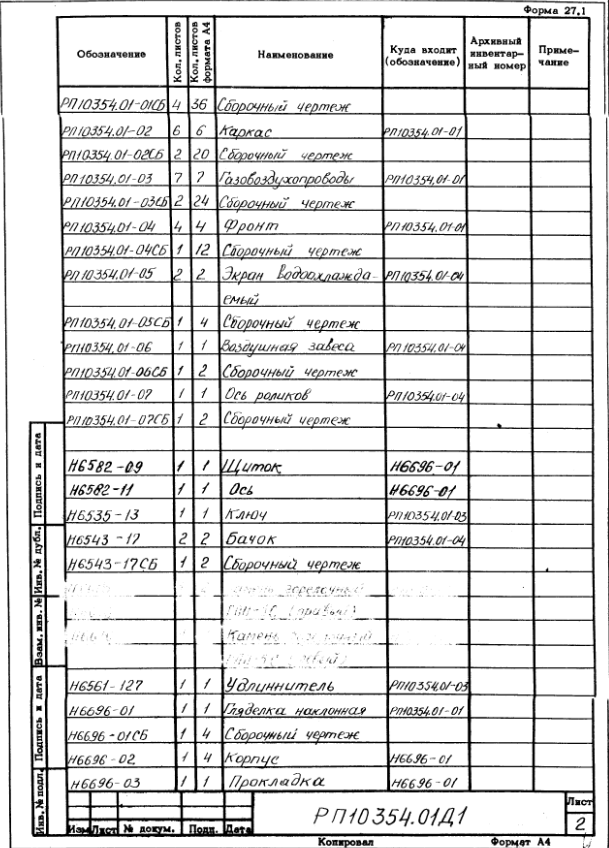 Форма 27.1
Обозначение Кол. листов Кол. листов формата А4 Наименование Куда входит (обозначение) Архивный инвентарный номер Примечание
РП10354.01-01СБ 4 36 Сборочный чертеж
РП10354.01-02 6 6 Каркас РП10354.01-01
РП10354.01-02СБ 2 20 Сборочный чертеж
РП10354.01-03 7 7 Газовоздухопроводы РП10354.01-01
РП10354.01-03СБ 2 24 Сборочный чертеж
РП10354.01-04 4 4 Фронт РП10354.01-01
РП10354.01-04СБ 1 12 Сборочный чертеж
РП10354.01-05 2 2 Экран водоохлажда- РП10354.01-04
емый
РП10354.01-05СБ 1 4 Сборочный чертеж
РП10354.01-06 1 1 Воздушная завеса РП10354.01-04
РП10354.01-06СБ 1 2 Сборочный чертеж
РП10354.01-07 1 1 Ось роликов РП10354.01-04
РП10354.01-07СБ 1 2 Сборочный чертеж
Н6582-09 1 1 Щиток Н6696-01
Н6582-11 1 1 Ось Н6696-01
Н6535-13 1 1 Ключ РП10354.01-03
Н6543-17 2 2 Бачок РП10354.01-04
Н6543-17СБ 1 2 Сборочный чертеж
горелочный
(правый)
Камень
Н6561-127 1 1 Удлиннитель РП10354.01-03
Н6696-01 1 1 Гляделка наклонная РП10354.01-01
Н6696-01СБ 1 4 Сборочный чертеж
Н6696-02 1 4 Корпус Н6696-01
Н6696-03 1 1 Прокладка Н6696-01
Подпись и дата
Инв. № дубл.
Взам. инв. №
Подпись и дата
Инв. № подл.
Изм Лист № докум. Подп. Дата
РП10354.01Д1
Лист
2
Копировал Формат А4